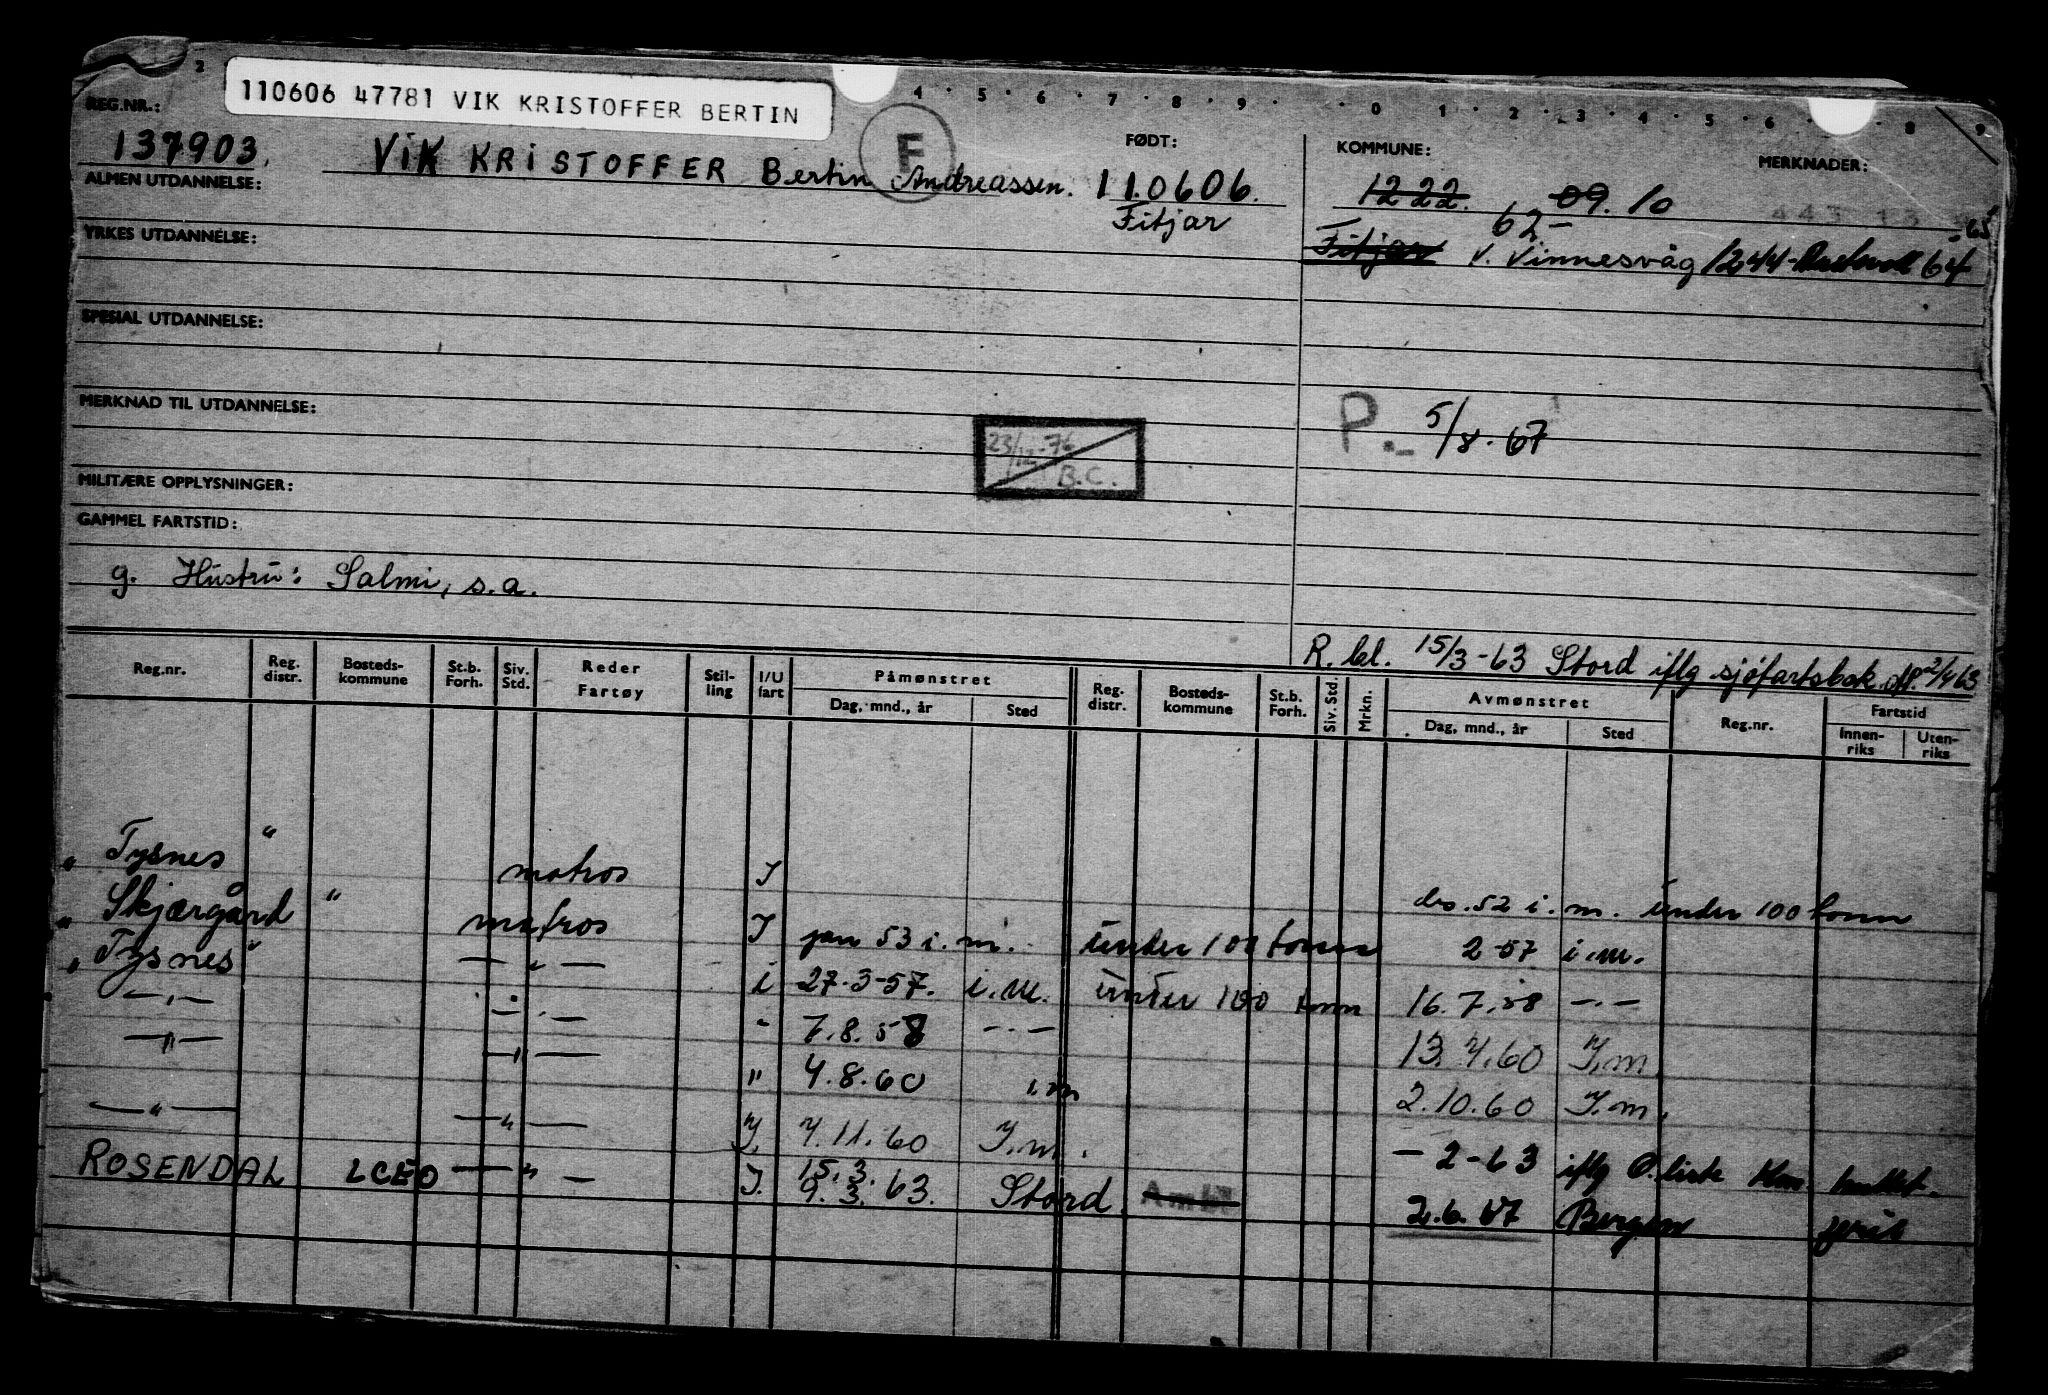 2 4 5 6 7 8 9 0 1 2 3 4 5 6 8 9
110606 47781 VIK KRISTOFFER BERTIN
REG.NR.:
137903.
F
ViK KRiSTOFFER Bertin Andreassen.
FØDT:
110606.
Fitjar
KOMMUNE:
MERKNADER:
1222. 09. 10
62- -65
Fitjar V. Vinnesvåg 1244- 64
ALMEN UTDANNELSE:
YRKES UTDANNELSE:
SPESIAL UTDANNELSE:
MERKNAD TIL UTDANNELSE:
23/12-76
B.C.
P.- 5/8.67
MILITÆRE OPPLYSNINGER:
GAMMEL FARTSTID:
g. Hustru: Salmi, s.a.
R.bl. 15/3-63 Stord iflg sjøfartsbok 2/4 63
Reg.nr. Reg. distr. Bosteds-kommune St.b. Forh. Siv. Std. Reder Fartøy Stil-ling I/U fart Påmønstret Dag, mnd., år Sted Reg. distr. Bosteds-kommune St.b. Forh. Siv. Std. Mrkn. Avmønstret Dag, mnd., år Sted Reg.nr. Fartstid Innen-riks Uten-riks
" Tysnes " matros I des.52 i.m. under 100 tonn
" Skjærgård " matros I jan 53 i.m. under 100 tonn 2-57 i.m.
" Tysnes " — " — i 27.3-57. i.m. under 100 tonn 16.7.58 —.—
—.— —.— " 7.8.58 —.— 13.7.60 I.m
—"— —"— " 4.8.60 i.m 2.10.60 I.m.
—"— —"— I. 7.11.60 I.m. -2-63 iflg
ROSENDAL LCEO —"— I. 15.3. 9.3.63. Stord. 2.6.67 Bergen